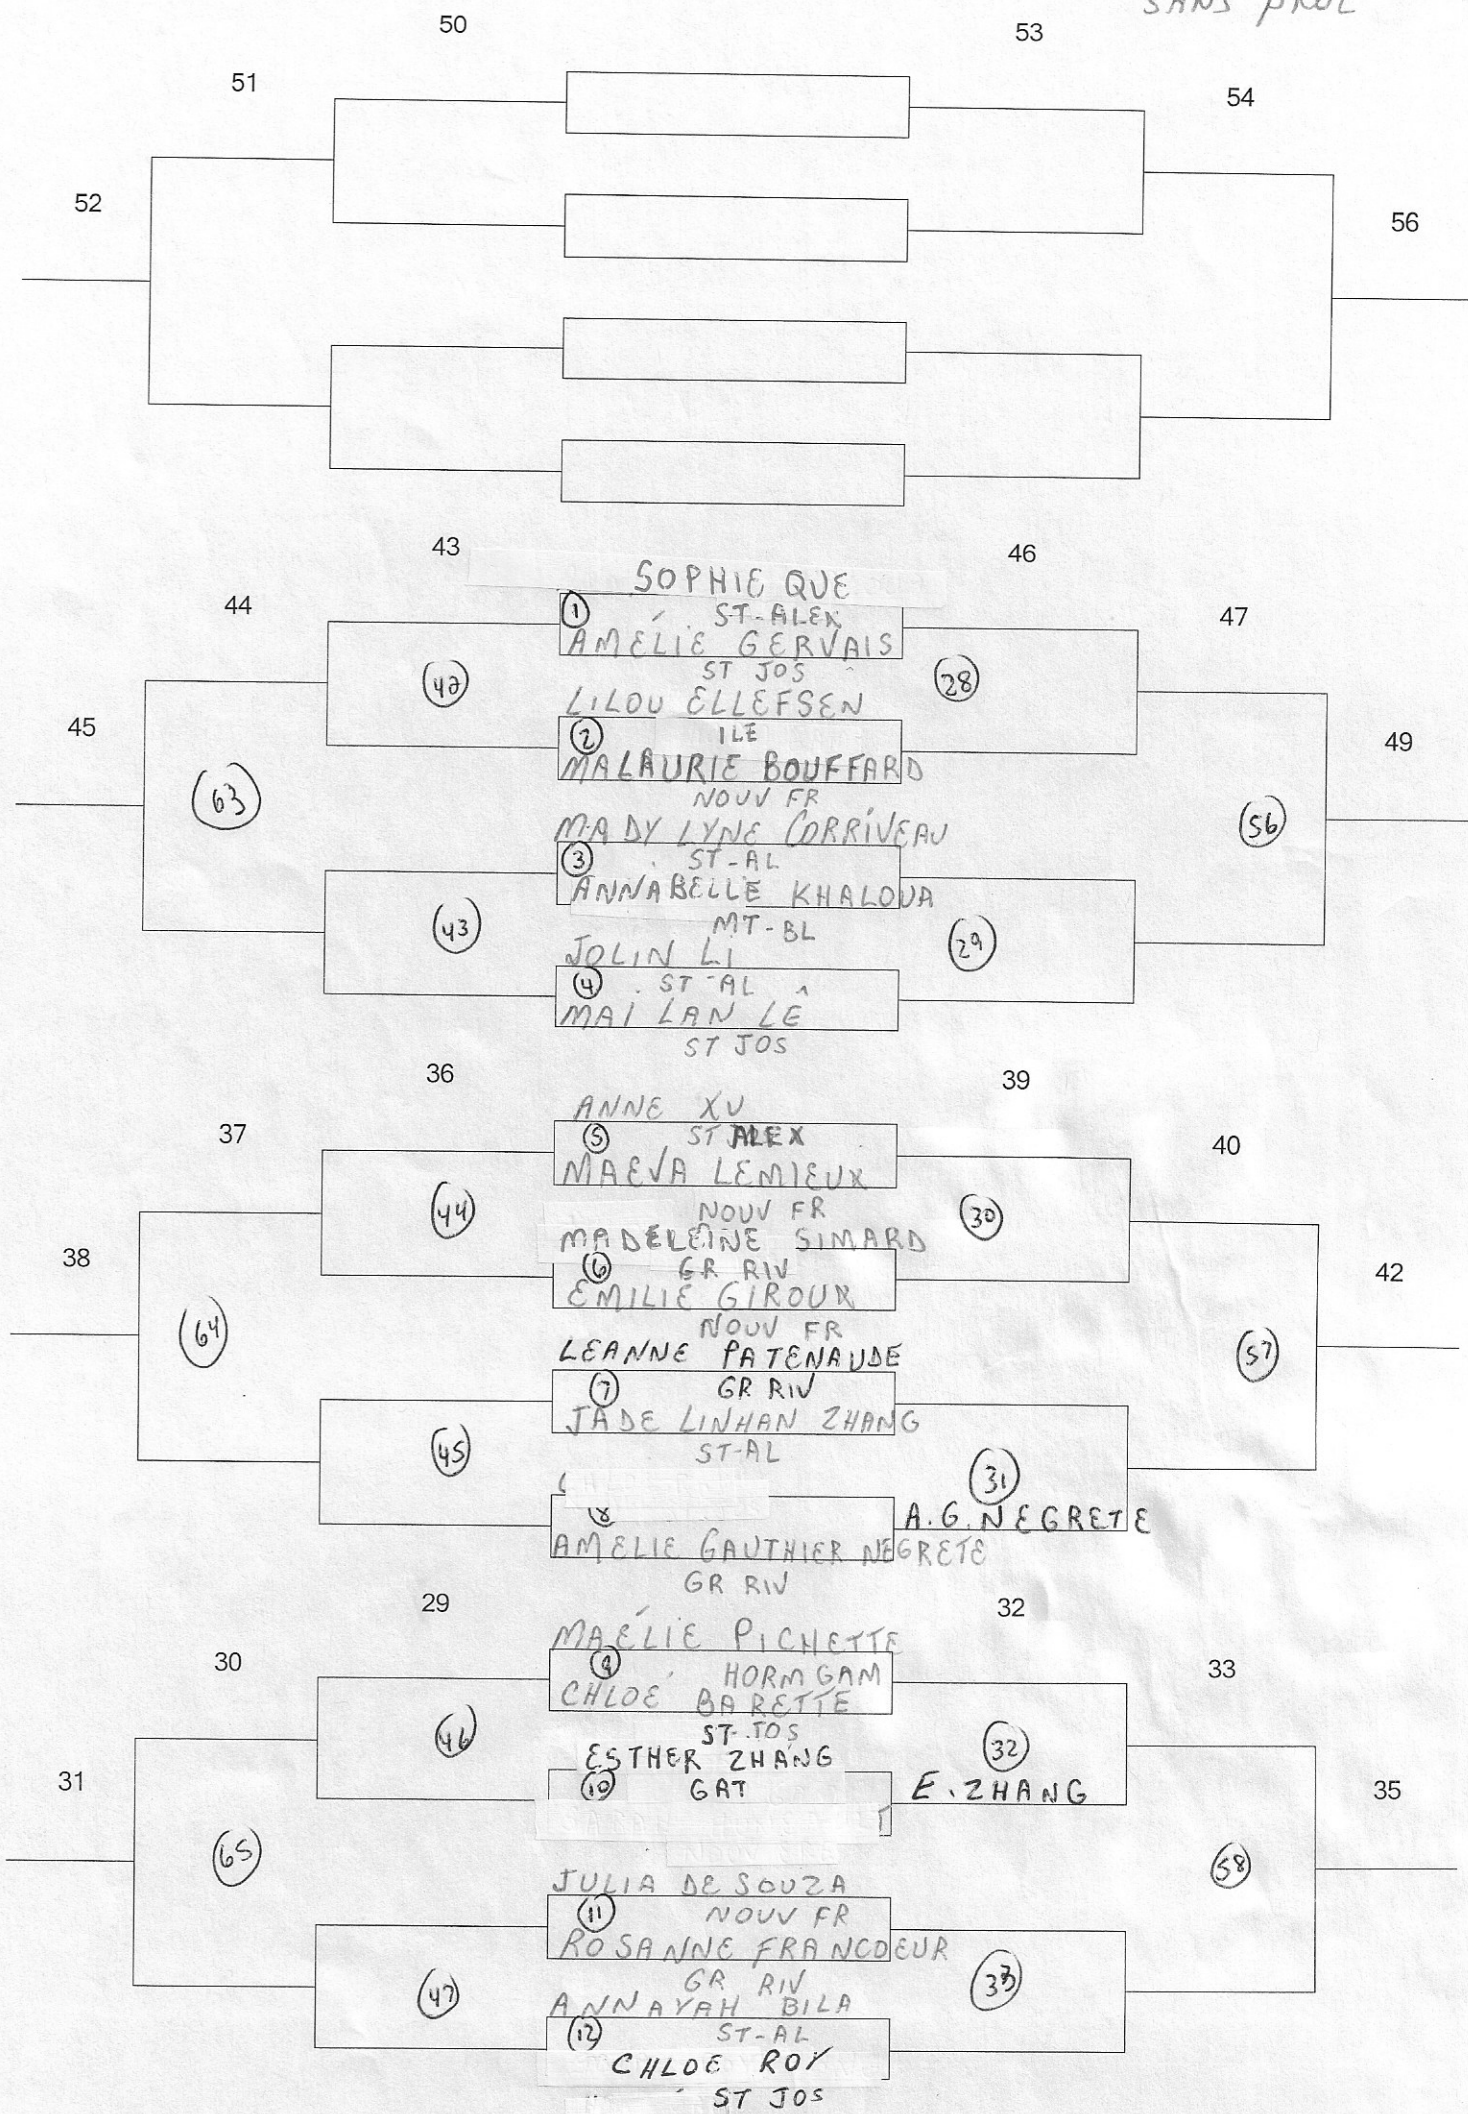 SANS
50
53
51
54
52
56
43
46
SOPHIE QUE
44
47
1 ST-ALEX
AMÉLIE GERVAIS
ST JOS
42
28
LILOU ELLEFSEN
45
49
2 ILE
MALAURIE BOUFFARD
NOUV FR
63
56
MADY LYNE CORRIVEAU
3 ST-AL
ANNABELLE KHALOUA
MT-BL
43
29
JOLIN LI
4 ST-AL
MAI LAN LÊ
ST JOS
36
39
ANNE XU
37
40
5 ST ALEX
MAEVA LEMIEUX
NOUV FR
44
30
MADELEINE SIMARD
38
42
6 GR RIV
EMILIE GIROUX
NOUV FR
64
57
LEANNE PATENAUDE
7 GR RIV
JADE LINHAN ZHANG
ST-AL
45
31
8
A.G. NEGRETE
AMELIE GAUTHIER NEGRETE
GR RIV
29
32
MAÉLIE PICHETTE
30
33
9 HORM GAM
CHLOÉ BARETTE
ST-JOS
46
32
ESTHER ZHANG
31
35
10 GAT
E. ZHANG
65
58
JULIA DE SOUZA
11 NOUV FR
ROSANNE FRANCOEUR
GR RIV
47
33
ANNAYAH BILA
12 ST-AL
CHLOE ROY
ST JOS